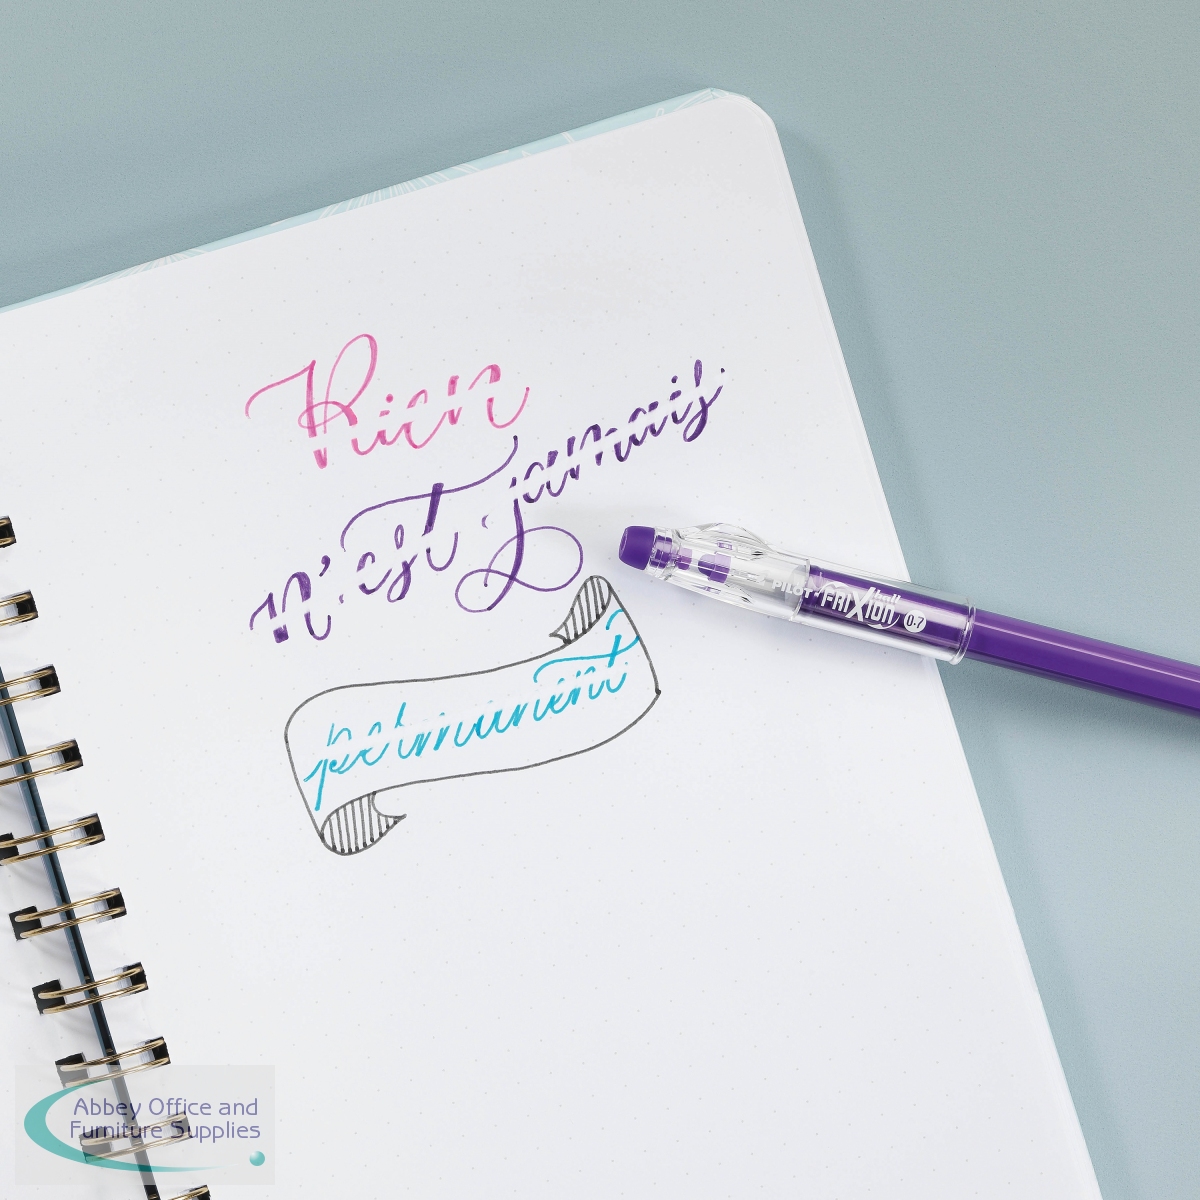 Rien
n'est jamais
permanent
PILOT FRIXION ball 0.7
Abbey Office and
Furniture Supplies